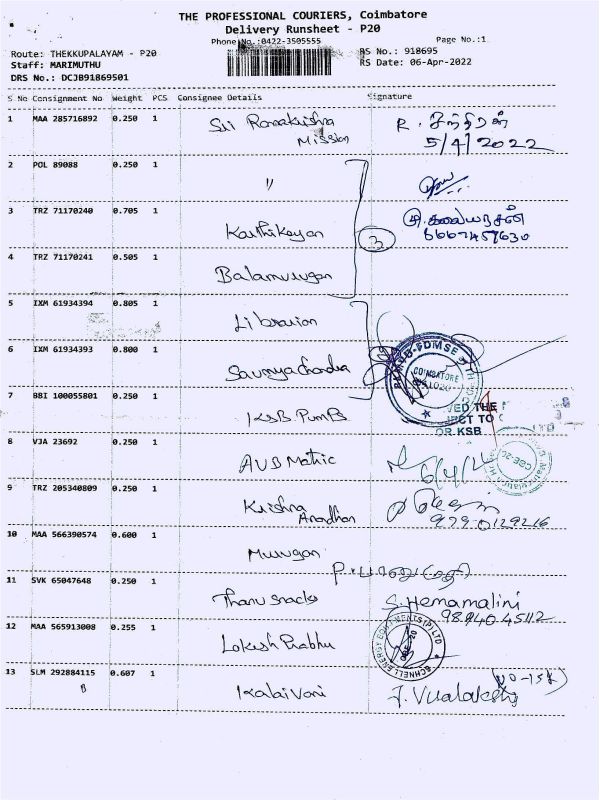 THE PROFESSIONAL COURIERS, Coimbatore
Delivery Runsheet - P20
Phone No.:0422-3505555
Page No.:1
Route: THEKKUPALAYAM - P20
RS No.: 918695
Staff: MARIMUTHU
RS Date: 06-Apr-2022
DRS No.: DCJB91869501
S No Consignment No Weight PCS Consignee Details Signature
1 MAA 285716892 0.250 1 Sri Ramakrishna
Mission
R. சந்திரன்
5/4/2022
2 POL 89088 0.250 1 "
3 TRZ 71170240 0.705 1 Karthikeyan
3
4 TRZ 71170241 0.505 1 Balamurugan
5 IXM 61934394 0.805 1 Librarian
6 IXM 61934393 0.800 1 Saumya Chandra
COIMBATORE
7 BBI 100055801 0.250 1 KSB Pumps
THE
TO
KSB
8 VJA 23692 0.250 1 AVB Matric
6/4/22
CBE-20
9 TRZ 205340809 0.250 1 Krishna
Anandhan
9790129216
10 MAA 566390574 0.600 1 Murugan
11 SVK 65047648 0.250 1 Thanu snacks
S. Hemamalini
98940 45112
12 MAA 565913008 0.255 1 Lokesh Prabhu
SCHNELL ENERGY EQUIPMENTS (P) LTD
13 SLM 292884115 0.607 1 Kalaivani